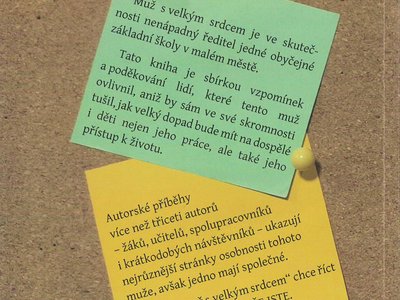 Muž s velkým srdcem je ve skuteč-
nosti nenápadný ředitel jedné obyčejné
základní školy v malém městě.
Tato kniha je sbírkou vzpomínek
a poděkování lidí, které tento muž
ovlivnil, aniž by sám ve své skromnosti
tušil, jak velký dopad bude mít na dospělé
i děti nejen jeho práce, ale také jeho
přístup k životu.
Autorské příběhy
více než třiceti autorů
– žáků, učitelů, spolupracovníků
i krátkodobých návštěvníků – ukazují
nejrůznější stránky osobnosti tohoto
muže, avšak jedno mají společné.
s velkým srdcem“ chce říct
JSTE.